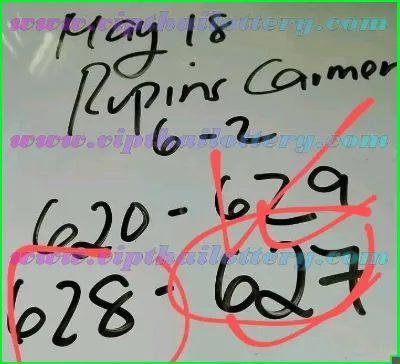 May 18
www.vipthailottery.com
Rupins Carmer
www.vipthailottery.com
6-2
620-629
www.vipthailottery.com
628-627